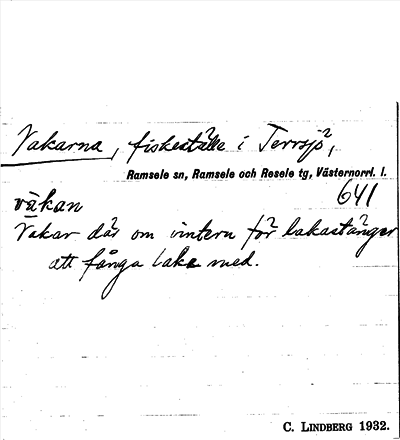 Vakarna, fiskeställe i Terrsjö,
Ramsele sn, Ramsele och Resele tg, Västernorrl. l.
641
vàkan
Vakar där om vintern för lakastänger
att fånga lake med.
C. LINDBERG 1932.